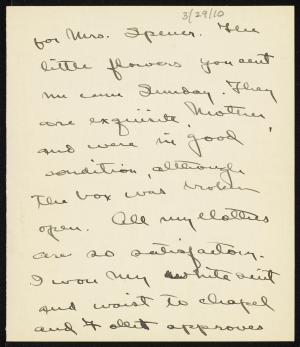 3/29/10
for Mrs. Spencer. The
little flowers you sent
me came Sunday. They
are exquisite, Mother,
and were in good
condition, although
the box was broken
open. All my clothes
are so satisfactory.
I wore my white suit
and waist to chapel
and approves